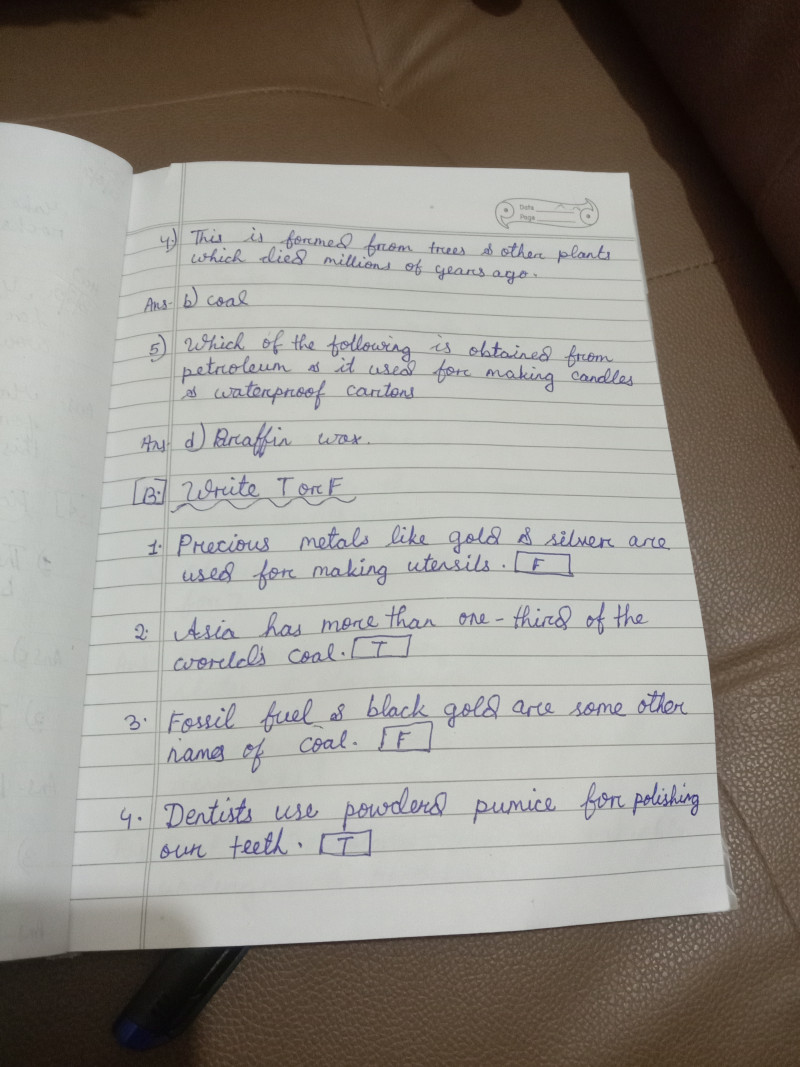 Date
Page
4) This is formed from trees & other plants
which died millions of years ago.
Ans- b) coal
5) Which of the following is obtained from
petroleum & it used for making candles
& waterproof cartons
Ans- d) Paraffin wax.
B. Write T or F
1. Precious metals like gold & silver are
used for making utensils. F
2. Asia has more than one-third of the
world's coal. T
3. Fossil fuel & black gold are some other
names of coal. F
4. Dentists use powderd pumice for polishing
our teeth. T